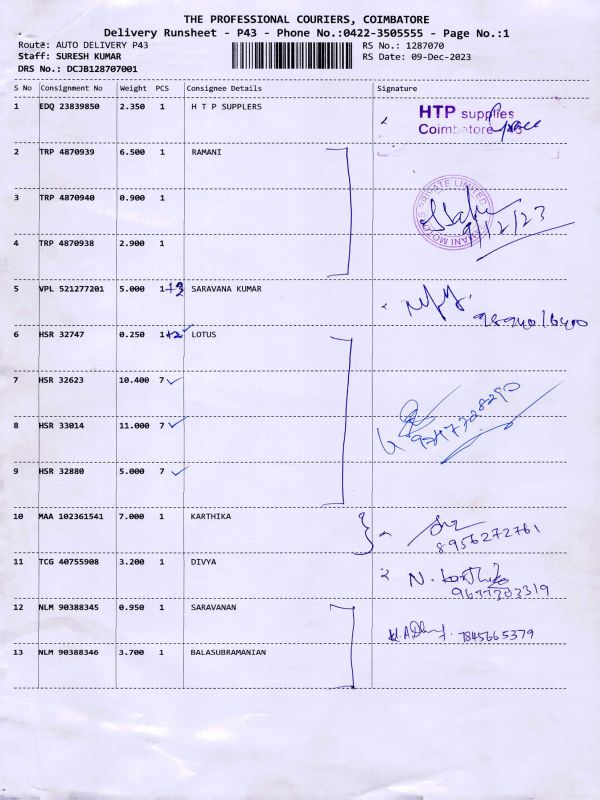 THE PROFESSIONAL COURIERS, COIMBATORE
Delivery Runsheet - P43 - Phone No.:0422-3505555 - Page No.:1
Route: AUTO DELIVERY P43 RS No.: 1287070
Staff: SURESH KUMAR RS Date: 09-Dec-2023
DRS No.: DCJB128707001
S No Consignment No Weight PCS Consignee Details Signature
1 EDQ 23839850 2.350 1 H T P SUPPLERS
HTP supplies
Coimbatore
2 TRP 4870939 6.500 1 RAMANI
3 TRP 4870940 0.900 1
PRIVATE LIMITED
9/12/23
4 TRP 4870938 2.900 1
5 VPL 521277201 5.000 1 SARAVANA KUMAR
6 HSR 32747 0.250 1+2 LOTUS
7 HSR 32623 10.400 7
8 HSR 33014 11.000 7
9 HSR 32880 5.000 7
10 MAA 102361541 7.000 1 KARTHIKA
8956272761
11 TCG 40755908 3.200 1 DIVYA
9677303319
12 NLM 90388345 0.950 1 SARAVANAN
7845665379
13 NLM 90388346 3.700 1 BALASUBRAMANIAN